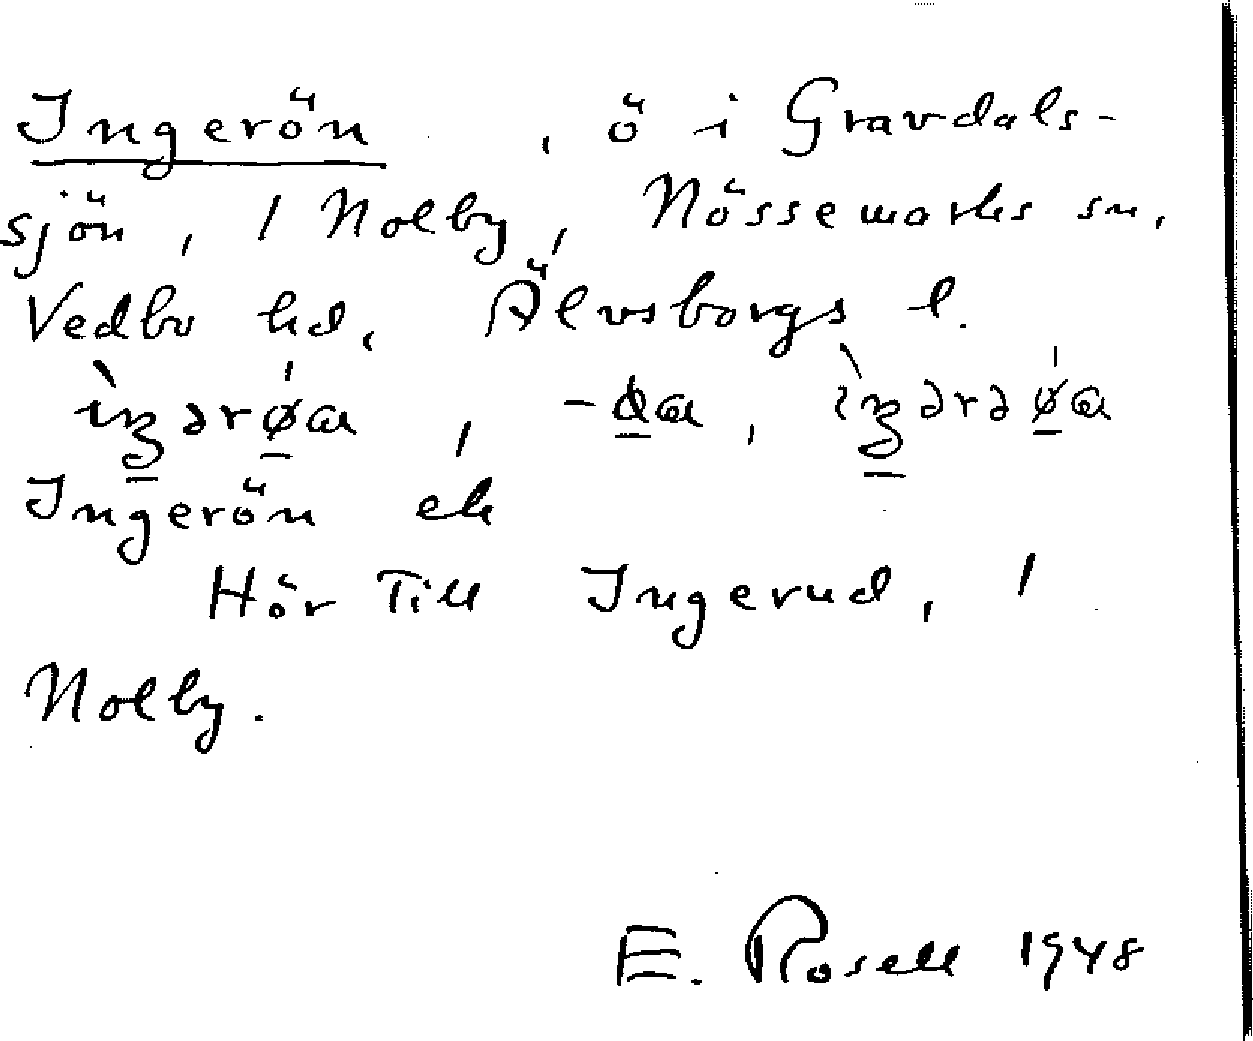 Ingerön, ö i Gravdals-
sjön, 1 Nolby, Nössemarks sn,
Vedbo hd, Älvsborgs l.
Ingerön ek
Hör till Ingerud, 1
Nolby.
E. Rosell 1948